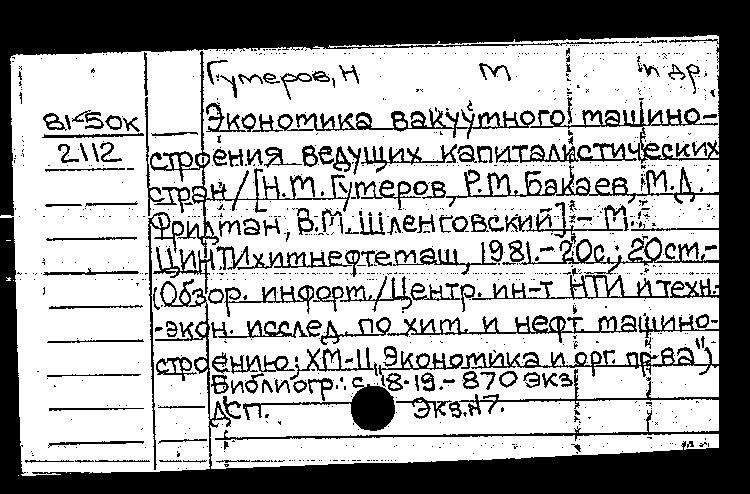 Гумеров, Н М и др.
81-50к
2112
Экономика вакуумного машино-
строения ведущих капиталистических
стран / [Н.М. Гумеров, Р.М. Бакаев, М.Д.
Фридман, В.М. Шленговский] - М.:
ЦИНТИхимнефтемаш, 1981. - 20с.; 20см. -
(Обзор. информ. / Центр. ин-т НТИ и техн.-
-экон. исслед. по хим. и нефт машино-
строению; ХМ-11 „Экономика и орг. пр-ва")
Библиогр.: с. 18-19. - 870 экз
ДСП. Экз.№7.